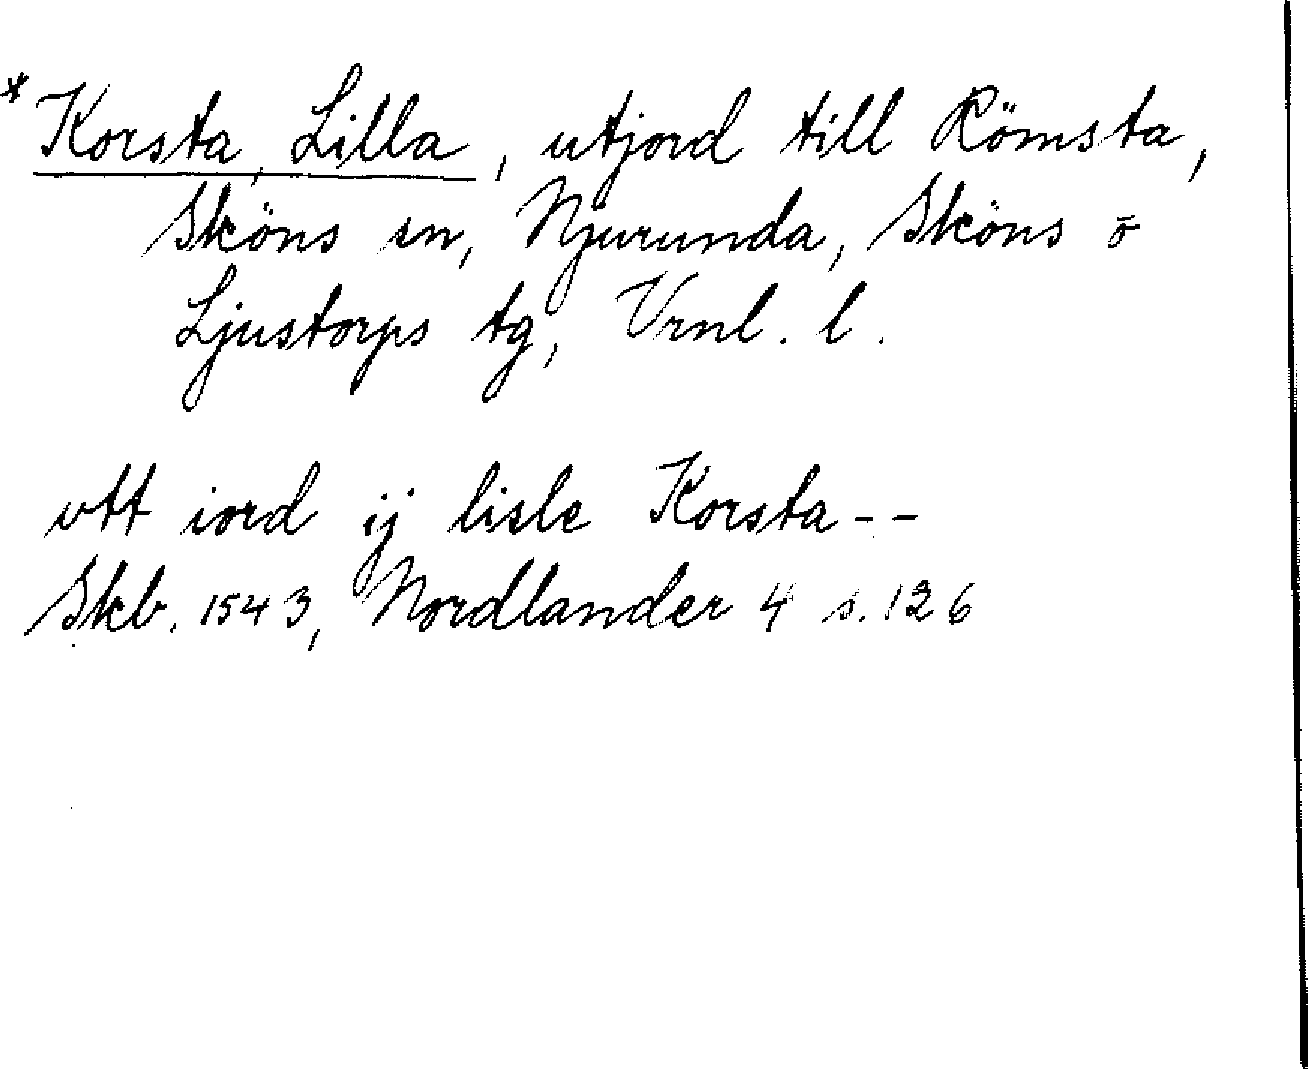 * Korsta, Lilla, utjord till Römsta,
Sköns sn, Njurunda, Sköns o
Ljustorps tg, Vrnl. l.
vtt iord ij lisle Korsta - -
Skb. 1543, Nordlander 4 s. 126